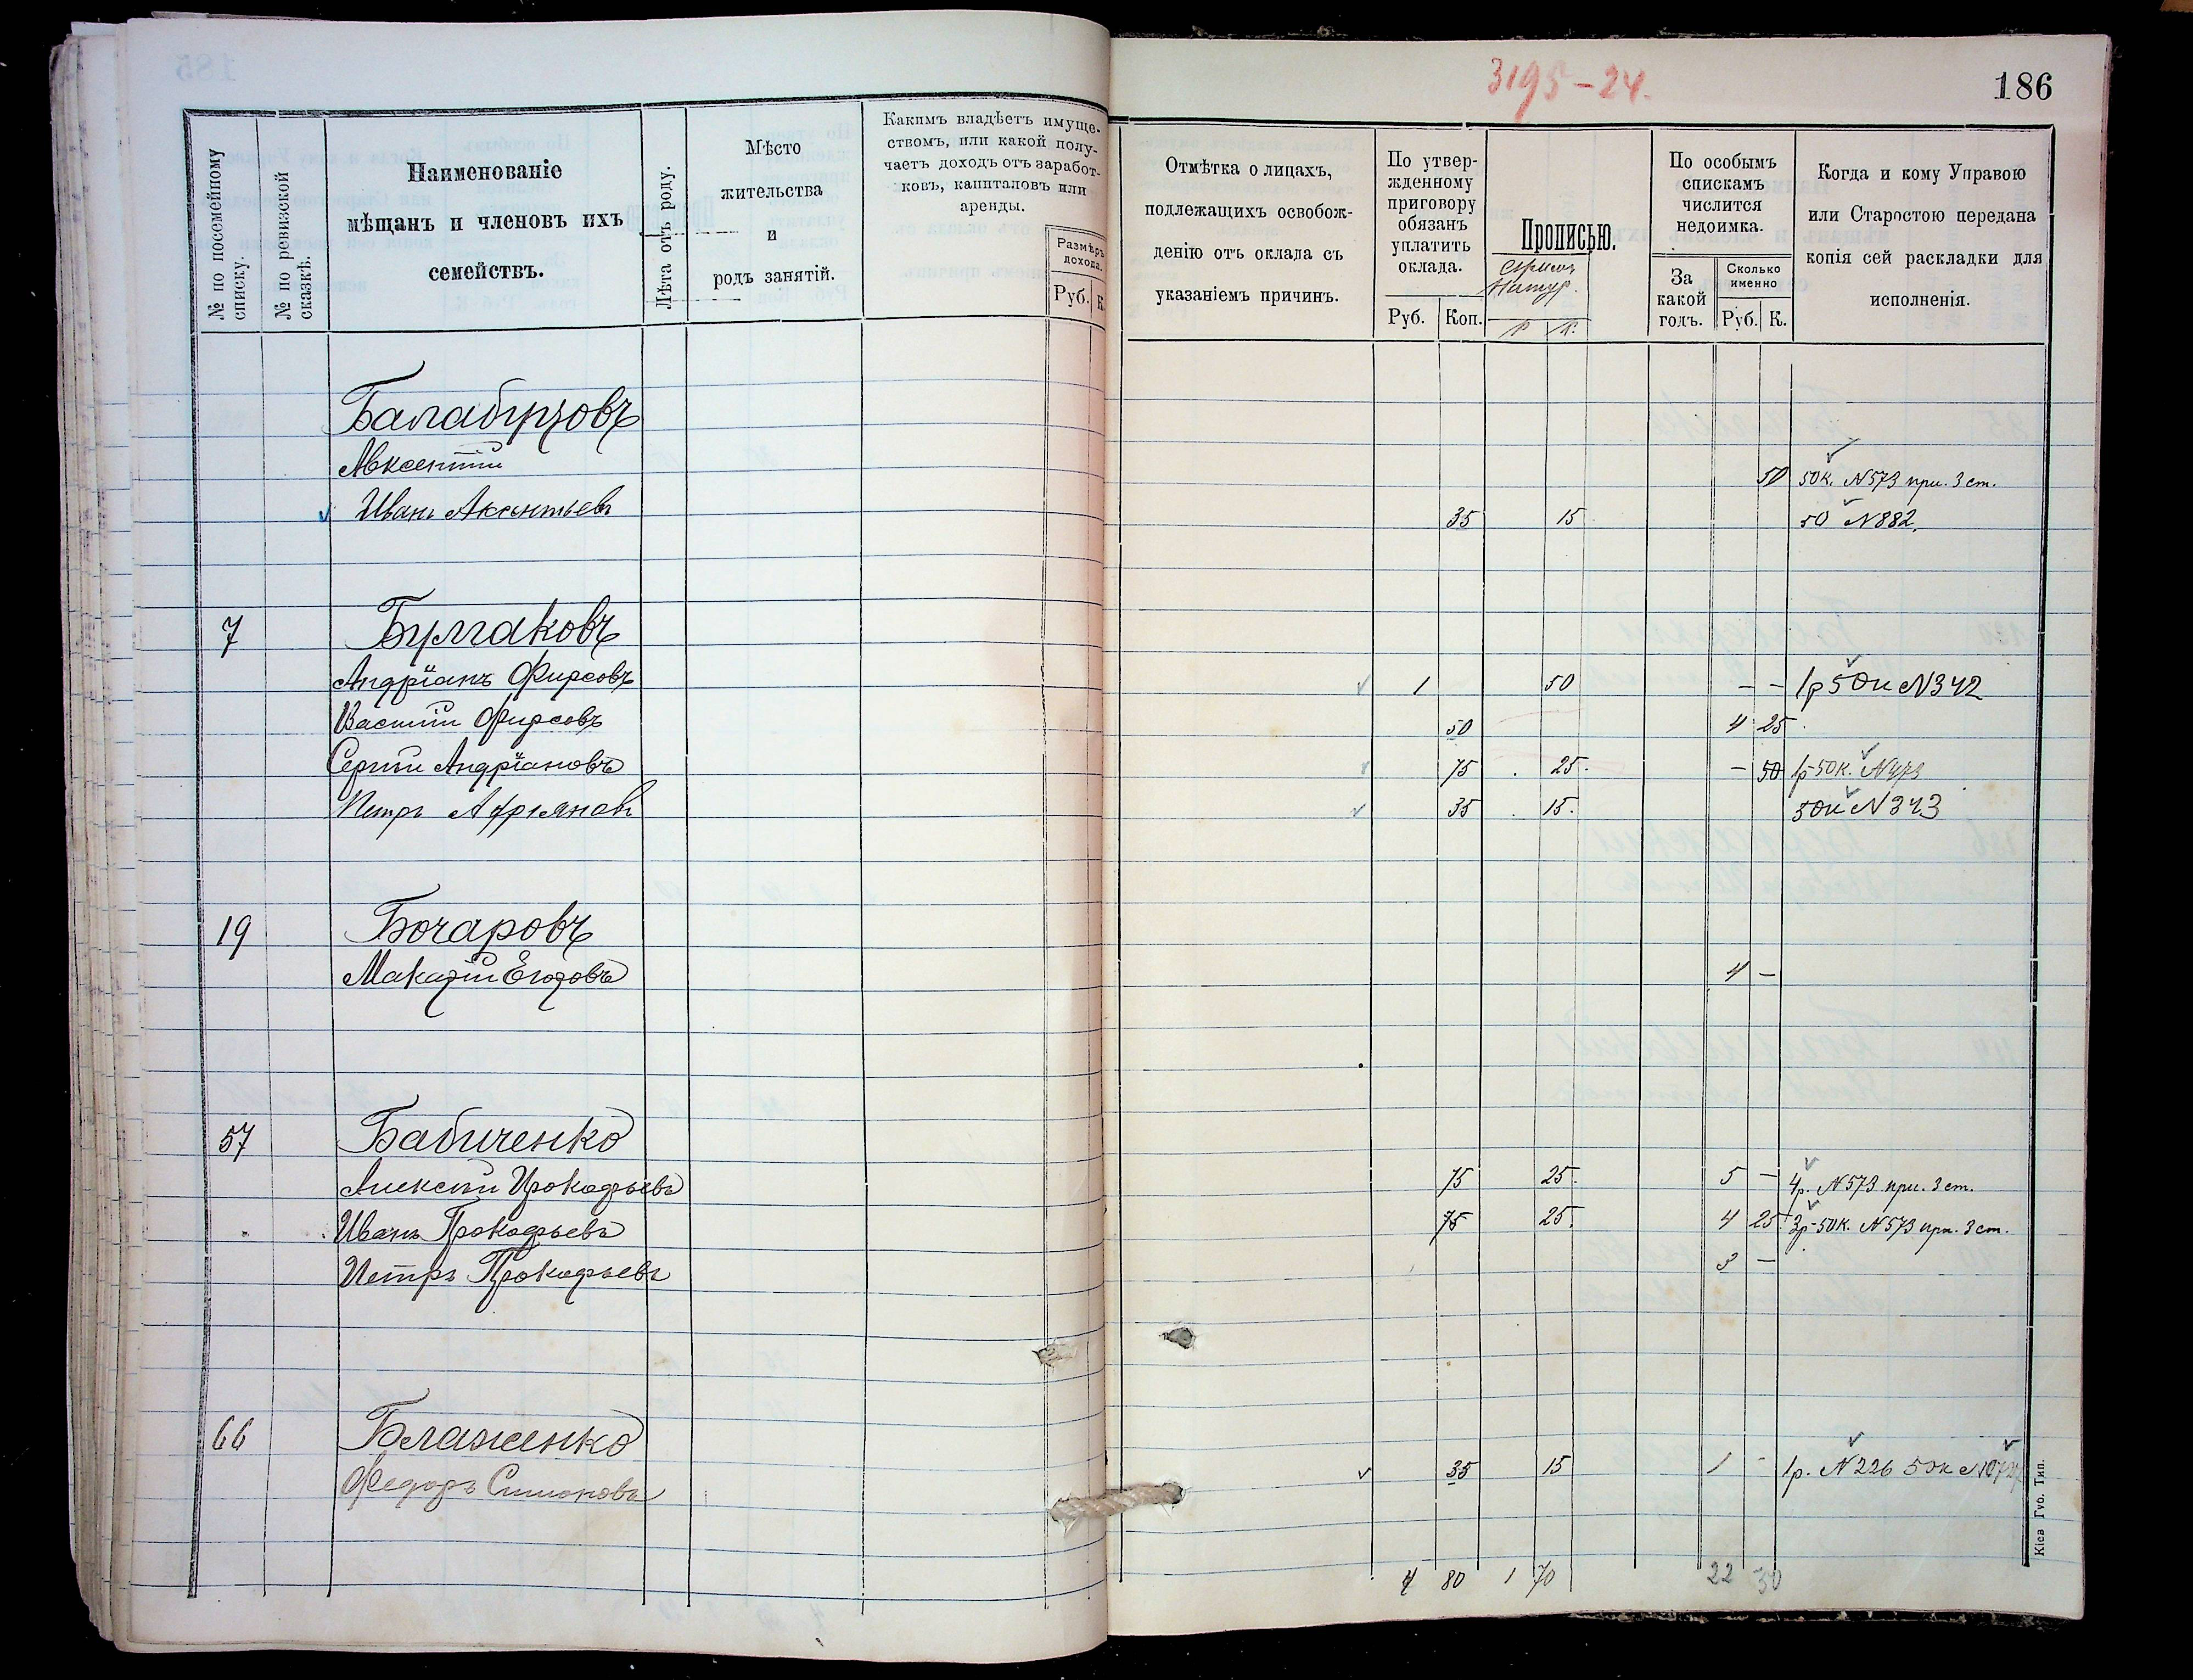 3195-24.
186
№ по посемейному списку.
№ по ревизской сказкѣ.
Наименованіе
мѣщанъ и членовъ ихъ
семействъ.
Лѣта отъ роду.
Мѣсто
жительства
и
родъ занятій.
Какимъ владѣетъ имуще-
ствомъ, или какой полу-
чаетъ доходъ отъ заработ-
ковъ, капиталовъ или
аренды.
Размѣръ
дохода.
Руб. К.
Отмѣтка о лицахъ,
подлежащихъ освобож-
денію отъ оклада съ
указаніемъ причинъ.
По утвер-
жденному
приговору
обязанъ
уплатить
оклада.
Руб. Коп.
Прописью.
Р К.
По особымъ
спискамъ
числится
недоимка.
За
какой
годъ.
Сколько
именно
Руб. К.
Когда и кому Управою
или Старостою передана
копія сей раскладки для
исполненія.
Авксентій 50 50к. N573 при. 3 ст.
Иванъ Аксентьевъ 35 15 50 N882.
7 Булгаковъ
Андріанъ Фирсовъ 1 50 — — 1р 50к N342
Василій Фирсовъ 50 4 25
Сергій Андріановъ 75 25. — 50 1р-50к.
Петръ Адріяновъ 35 15. 50к N343
19 Бочаровъ
Макарій Егоровъ 4 —
57 Бабиченко
Алексій Прокофьевъ 75 25. 5 — 4р. N573 при. 3 ст.
Иванъ Прокофьевъ 75 25. 4 25 3р-50к. N573 при. 3 ст.
Петръ Прокофьевъ 3 —
66 Блаженко
Федоръ Симоновъ 35 15 1 - 1р. N226 50к
4 80 1 70 22 50
Кіев Губ. Тип.